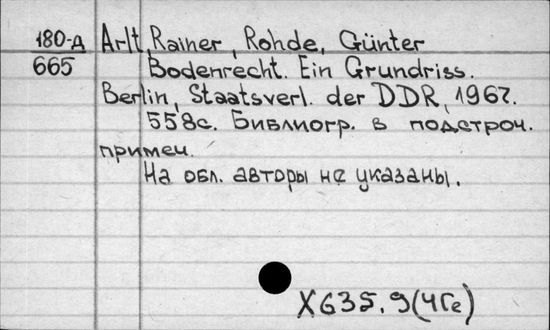 180-д Arlt, Rainer, Rohde, Günter
665 Bodenrecht. Ein Grundriss.
Berlin, Staatsverl. der DDR, 1967.
558с. Библиогр. в подстроч.
примеч.
На обл. авторы не указаны.
X635.9(4Ге)